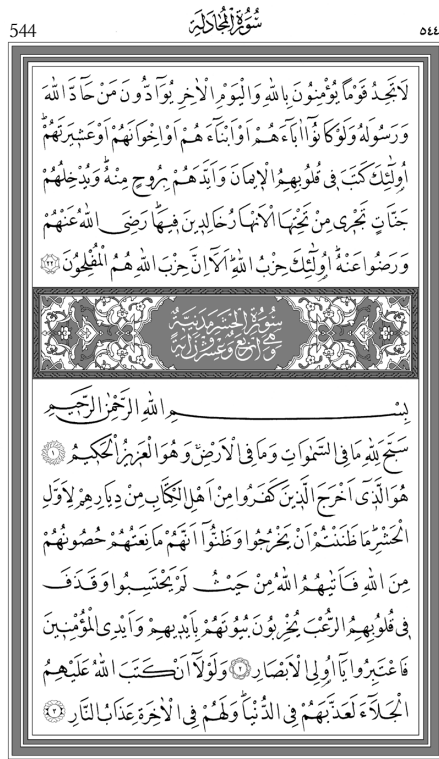 544 سُورَةُ الْمُجَادَلَةِ ٥٤٤
لَا تَجِدُ قَوْمًا يُؤْمِنُونَ بِاللهِ وَالْيَوْمِ الْاٰخِرِ يُوَٓادُّونَ مَنْ حَٓادَّ اللهَ
وَرَسُولَهُ وَلَوْ كَانُٓوا اٰبَٓاءَهُمْ اَوْ اَبْنَٓاءَهُمْ اَوْ اِخْوَانَهُمْ اَوْ عَشِيرَتَهُمْۜ
اُولٰٓئِكَ كَتَبَ فِى قُلُوبِهِمُ الْاِيمَانَ وَاَيَّدَهُمْ بِرُوحٍ مِنْهُۜ وَيُدْخِلُهُمْ
جَنَّاتٍ تَجْرِى مِنْ تَحْتِهَا الْاَنْهَارُ خَالِدِينَ فِيهَاۜ رَضِىَ اللهُ عَنْهُمْ
وَرَضُوا عَنْهُۜ اُولٰٓئِكَ حِزْبُ اللهِۜ اَلَٓا اِنَّ حِزْبَ اللهِ هُمُ الْمُفْلِحُونَ ﴿٢٢﴾
سُورَةُ الْحَشْرِ مَدَنِيَّةٌ
وَهِىَ اَرْبَعٌ وَعِشْرُونَ اٰيَةً
بِسْــــــمِ اللهِ الرَّحْمٰنِ الرَّحِيمِ
سَبَّحَ لِلهِ مَا فِى السَّمٰوَاتِ وَمَا فِى الْاَرْضِۚ وَهُوَ الْعَزِيزُ الْحَكِيمُ ﴿١﴾
هُوَ الَّذِٓى اَخْرَجَ الَّذِينَ كَفَرُوا مِنْ اَهْلِ الْكِتَابِ مِنْ دِيَارِهِمْ لِاَوَّلِ
الْحَشْرِۜ مَا ظَنَنْتُمْ اَنْ يَخْرُجُوا وَظَنُّٓوا اَنَّهُمْ مَانِعَتُهُمْ حُصُونُهُمْ
مِنَ اللهِ فَاَتٰيهُمُ اللهُ مِنْ حَيْثُ لَمْ يَحْتَسِبُوا وَقَذَفَ
فِى قُلُوبِهِمُ الرُّعْبَ يُخْرِبُونَ بُيُوتَهُمْ بِاَيْدِيهِمْ وَاَيْدِى الْمُؤْمِنِينَ
فَاعْتَبِرُوا يَٓا اُولِى الْاَبْصَارِ ﴿٢﴾ وَلَوْلَٓا اَنْ كَتَبَ اللهُ عَلَيْهِمُ
الْجَلَٓاءَ لَعَذَّبَهُمْ فِى الدُّنْيَاۜ وَلَهُمْ فِى الْاٰخِرَةِ عَذَابُ النَّارِ ﴿٣﴾